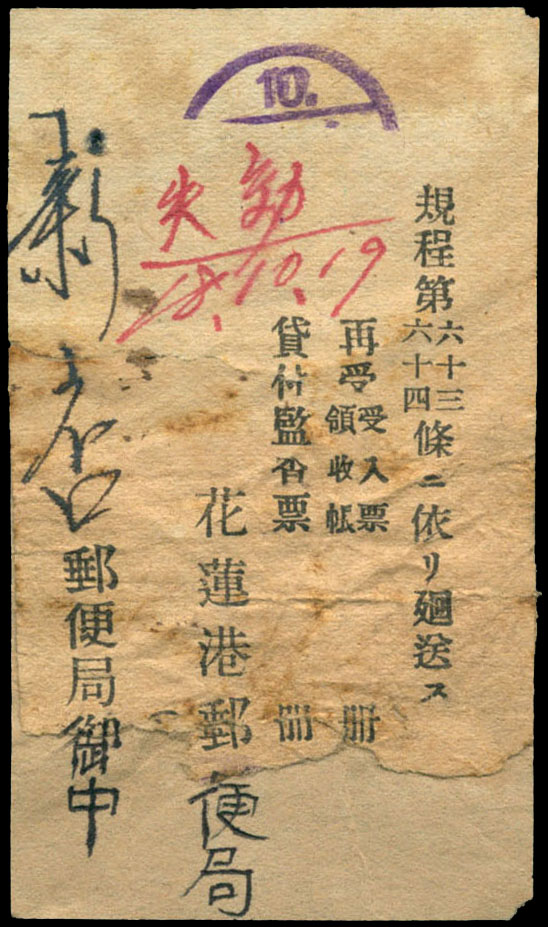 10.
失効
18.10.19
規程第六十三六十四條ニ依リ廻送ス
再受受入票領收帳 冊
貸付監査票 冊
花蓮港郵便局
郵便局御中